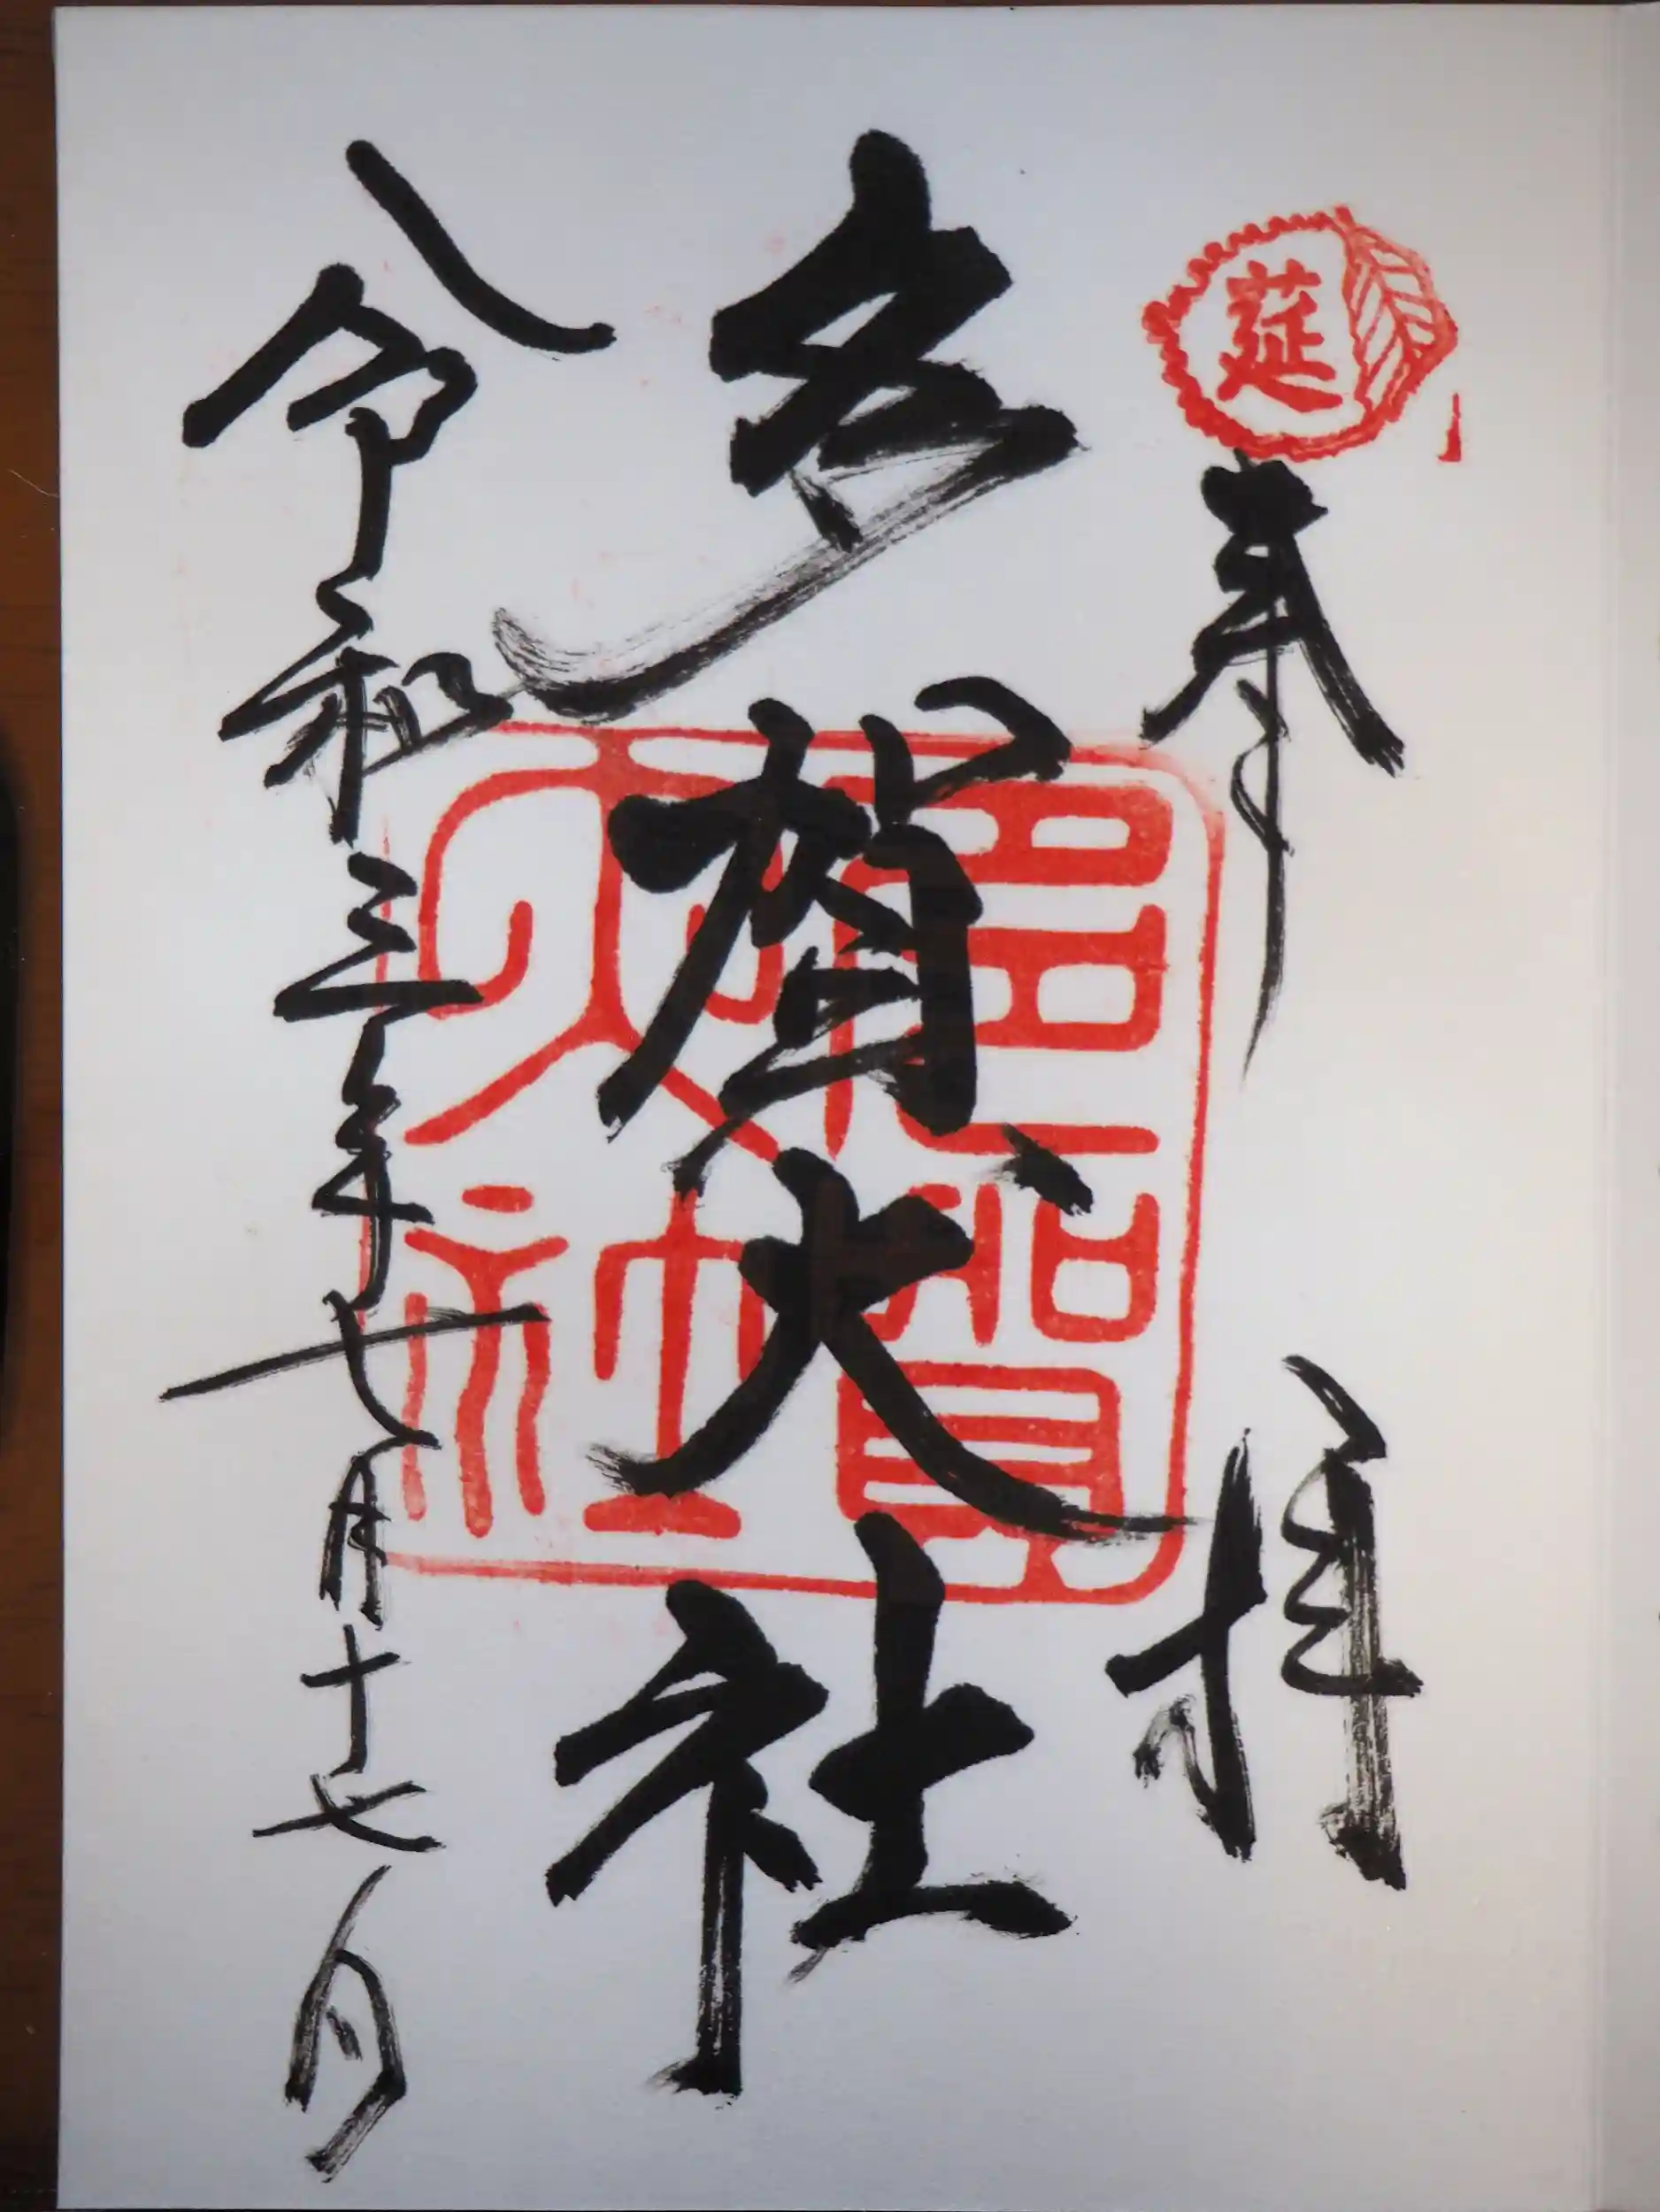 莚
奉拝
多賀大社
多賀
大社
令和三年七月十七日